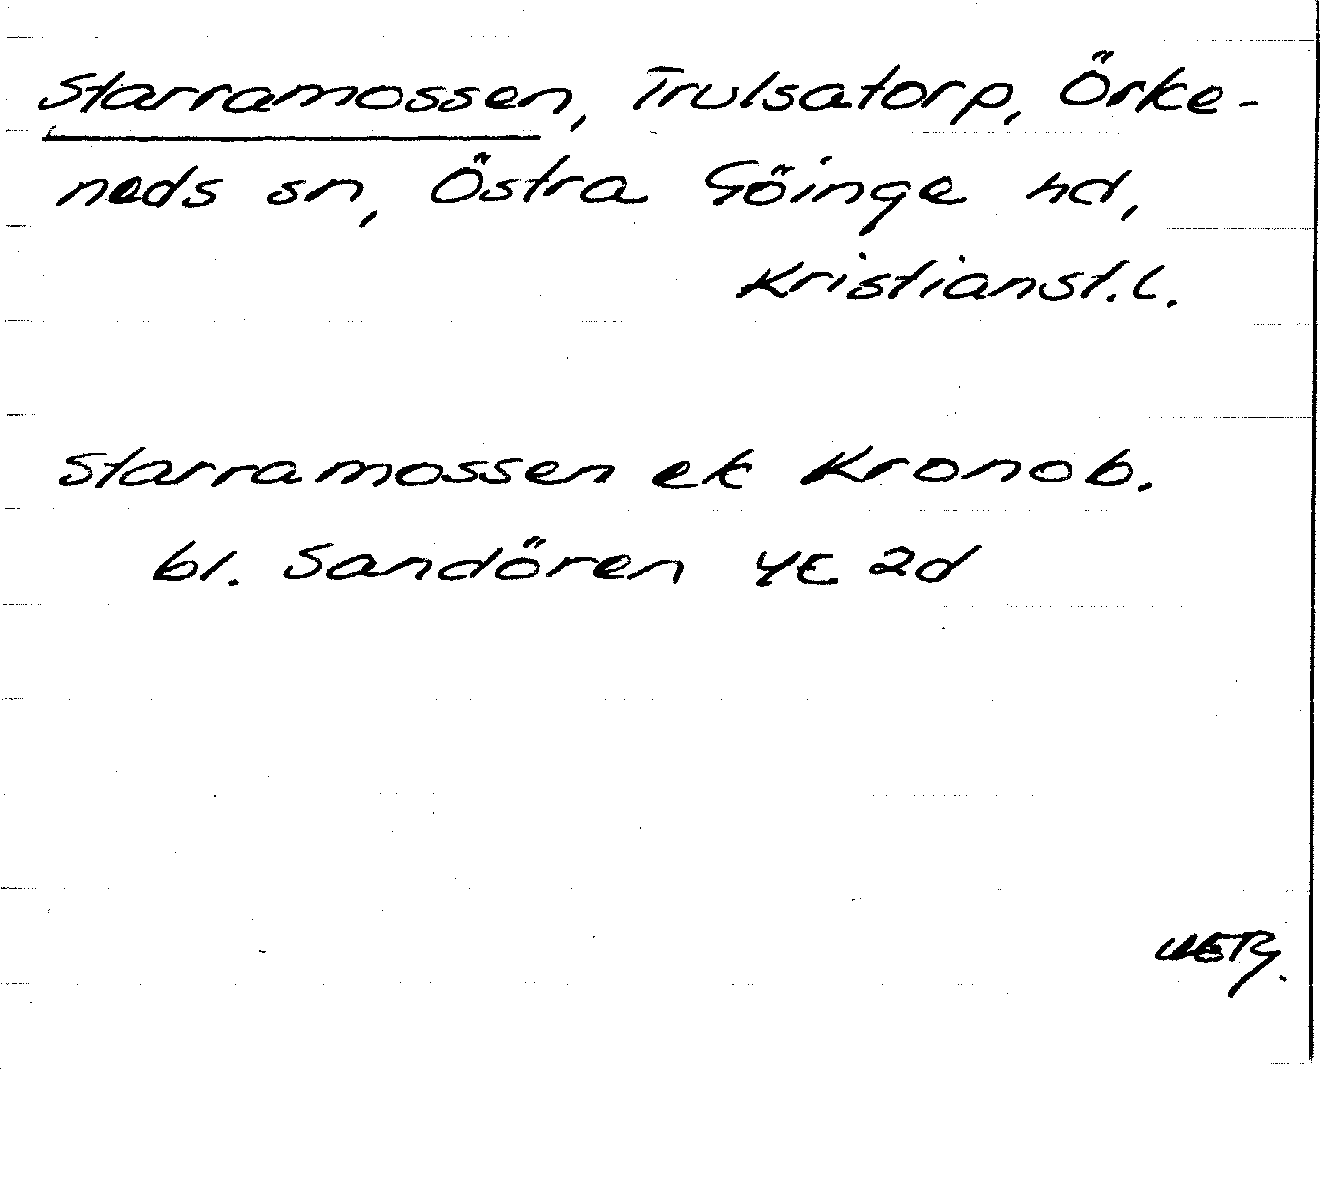 Starramossen, Trulsatorp, Örke-
neds sn, Östra Göinge hd,
Kristianst.l.
Starramossen ek Kronob.
bl. Sandören 4E 2d